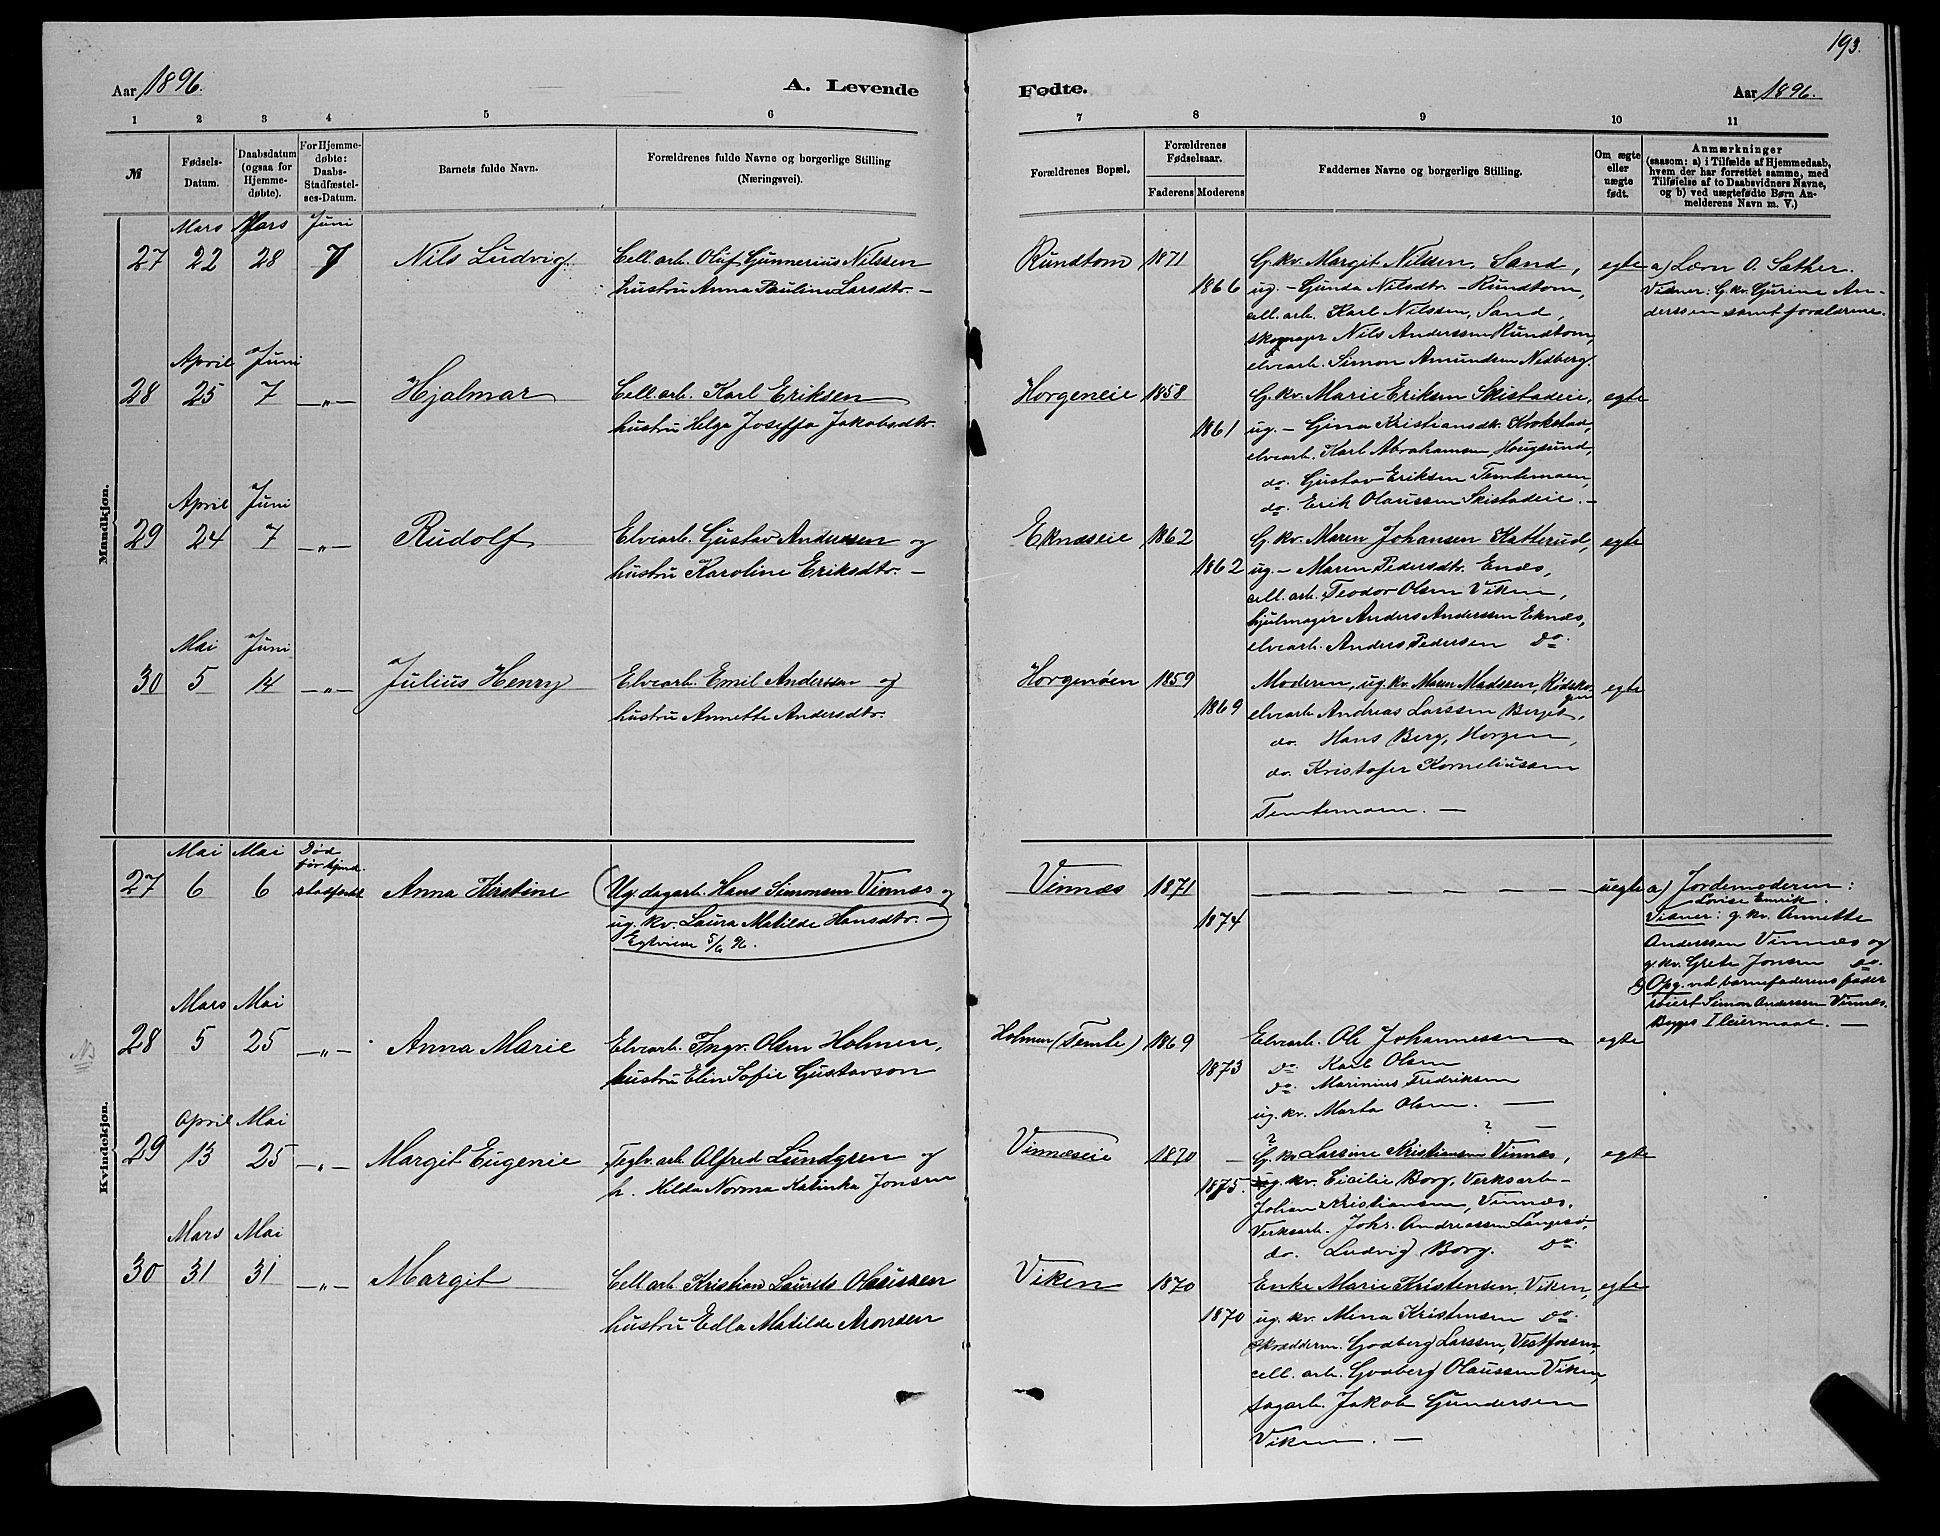 193.
Aar 1896.
A. Levende
Fødte.
Aar 1896.
1 2 3 4 5 6 7 8 9 10 11
№
Fødsels-
Datum.
Daabsdatum
(ogsaa for
Hjemme-
døbte).
For Hjemme-
døbte:
Daabs-
Stadfæstel-
ses-Datum.
Barnets fulde Navn.
Forældrenes fulde Navne og borgerlige Stilling
(Næringsvei).
Forældrenes Bopæl.
Forældrenes
Fødselsaar.
Faderens Moderens
Faddernes Navne og borgerlige Stilling.
Om ægte
eller
uægte
født.
Anmærkninger
(saasom: a) i Tilfælde af Hjemmedaab,
hvem der har forrettet samme, med
Tilføielse af to Daabsvidners Navne,
og b) ved uægtefødte Børn An-
melderens Navn m. V.)
Mandkjøn.
Mars Mars Juni
27 22 28 7 Nils Ludvig. Cell. arb. Oluf Gunnerius Nilssen
hustru Anna Pauline Larsdtr. —
Rundtom 1871
1866
G. kv. Margit Nilssen, Sand,
ug. — Gunda Nilsdtr. — Rundtom,
cell. arb. Karl Nilssen, Sand,
skomager Nils Anderssen Rundtom,
elvearb. Simon Amundsen Nedberg.
egte
a) Lærn O. Sæther.
Vidner: G. kv. Gurine An-
derssen samt forældrene.
April Juni
28 25 7 —„— Hjalmar Cell. arb. Karl Eriksen
hustru Helga Joseffa Jakobsdtr.
Horgeneie 1858
1861
G. kv. Marie Eriksen Skistadeie,
ug. — Gina Kristiansdtr. Krokstad,
elvearb. Karl Abrahamsen, Hougsund,
do. Gustav Eriksen Temtemoen,
do. Erik Olaussen Skistadeie. —
egte
April Juni
29 24 7 —„— Rudolf Elvearb. Gustav Andersen og
hustru Karoline Eriksdtr. —
Eknæseie 1862
1862
G. kv. Maren Johansen Katterud,
ug. — Maren Pedersdtr. Enæs,
cell. arb. Teodor Olsen Viken,
hjulmager Anders Anderssen Eknæs,
elvearb. Anders Pedersen do.
egte
Mai Juni
30 5 14 —„— Julius Henry Elvearb. Emil Anderssen og
hustru Annette Andersdtr.
Horgenøen 1859
1869
Moderen, ug. kv. Maren Madssen,
elvearb. Andreas Larssen Berget,
do. Hans Berg, Horgen,
do. Kristofer Korneliussen
Temtemoen. —
egte
Kvindekjøn.
Mai Mai Død
27 6 6 før
Anna Kirstine Ug. dagarb. Hans Simonsen Vinnæs og
ug. kv. Laura Matilde Hansdtr. —
Egteviede 5/6 96.
Vinnæs 1871
1874
— — — — — — —
uegte
a) Jordemoderen:
Lovise Emrik.
Vidner: g. kv. Annette
Anderssen Vinnæs og
g. kv. Grete Jonsen do.
b) Opg. ved barnefaderens fader
Simon Anderssen Vinnæs.
Begges I leiermaal. —
Mars Mai
28 5 25 —„— Anna Marie Elvearb. Ingv. Olsen Holmen,
hustru Elin Sofie Gustavson
Holmen (Temte) 1869
1873
Elvearb. Ole Johannessen
do. Karl Olsen
do. Marinius Fredriksen
ug. kv. Marta Olsen. —
egte
April Mai
29 13 25 —„— Margit Eugenie Teglv. arb. Alfred Lundgren og
h. Hilda Norma Katinka Jonsen
Vinnæseie 1870
1875.
? ? —
G. kv. Larsine Kristiansen Vinnæs,
ug. kv. Cicilie Borg, Verksarb.
Johan Kristiansen, Vinnæs,
Verksarb. Johs. Andreassen Langesø,
do. Ludvig Borg. do.
egte
Mars Mai
30 31 31 —„— Margit Cell. arb. Kristian Laurits Olaussen
hustru Edla Matilde Aronsen
Viken 1870
1870
Enke Marie Kristensen, Viken,
ug. kv. Mina Kristensen do.
skrædderm. Godberg Larssen, Vestfossen,
cell. arb. Godberg Olaussen Viken,
sagarb. Jakob Gundersen
Viken. —
egte